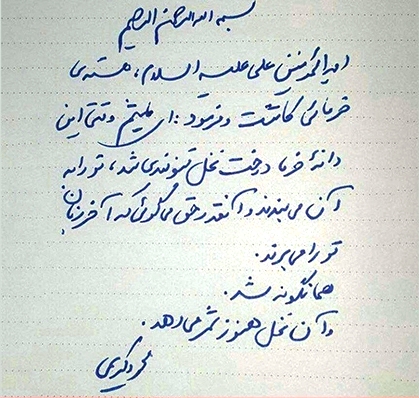 بسم الله الرحمن الرحیم
امیرالمؤمنین علی علیه السلام، هسته‌ی
خرمائی کاشت و فرمود: ای میثم وقتی این
دانهٔ خرما درخت نخل تنومندی شد، تو را به
آن می‌بندند و آنقدر حق می‌گوئی که آخر زبان
تو را می‌برند.
همانگونه شد.
و آن نخل هنوز ثمر می‌دهد.